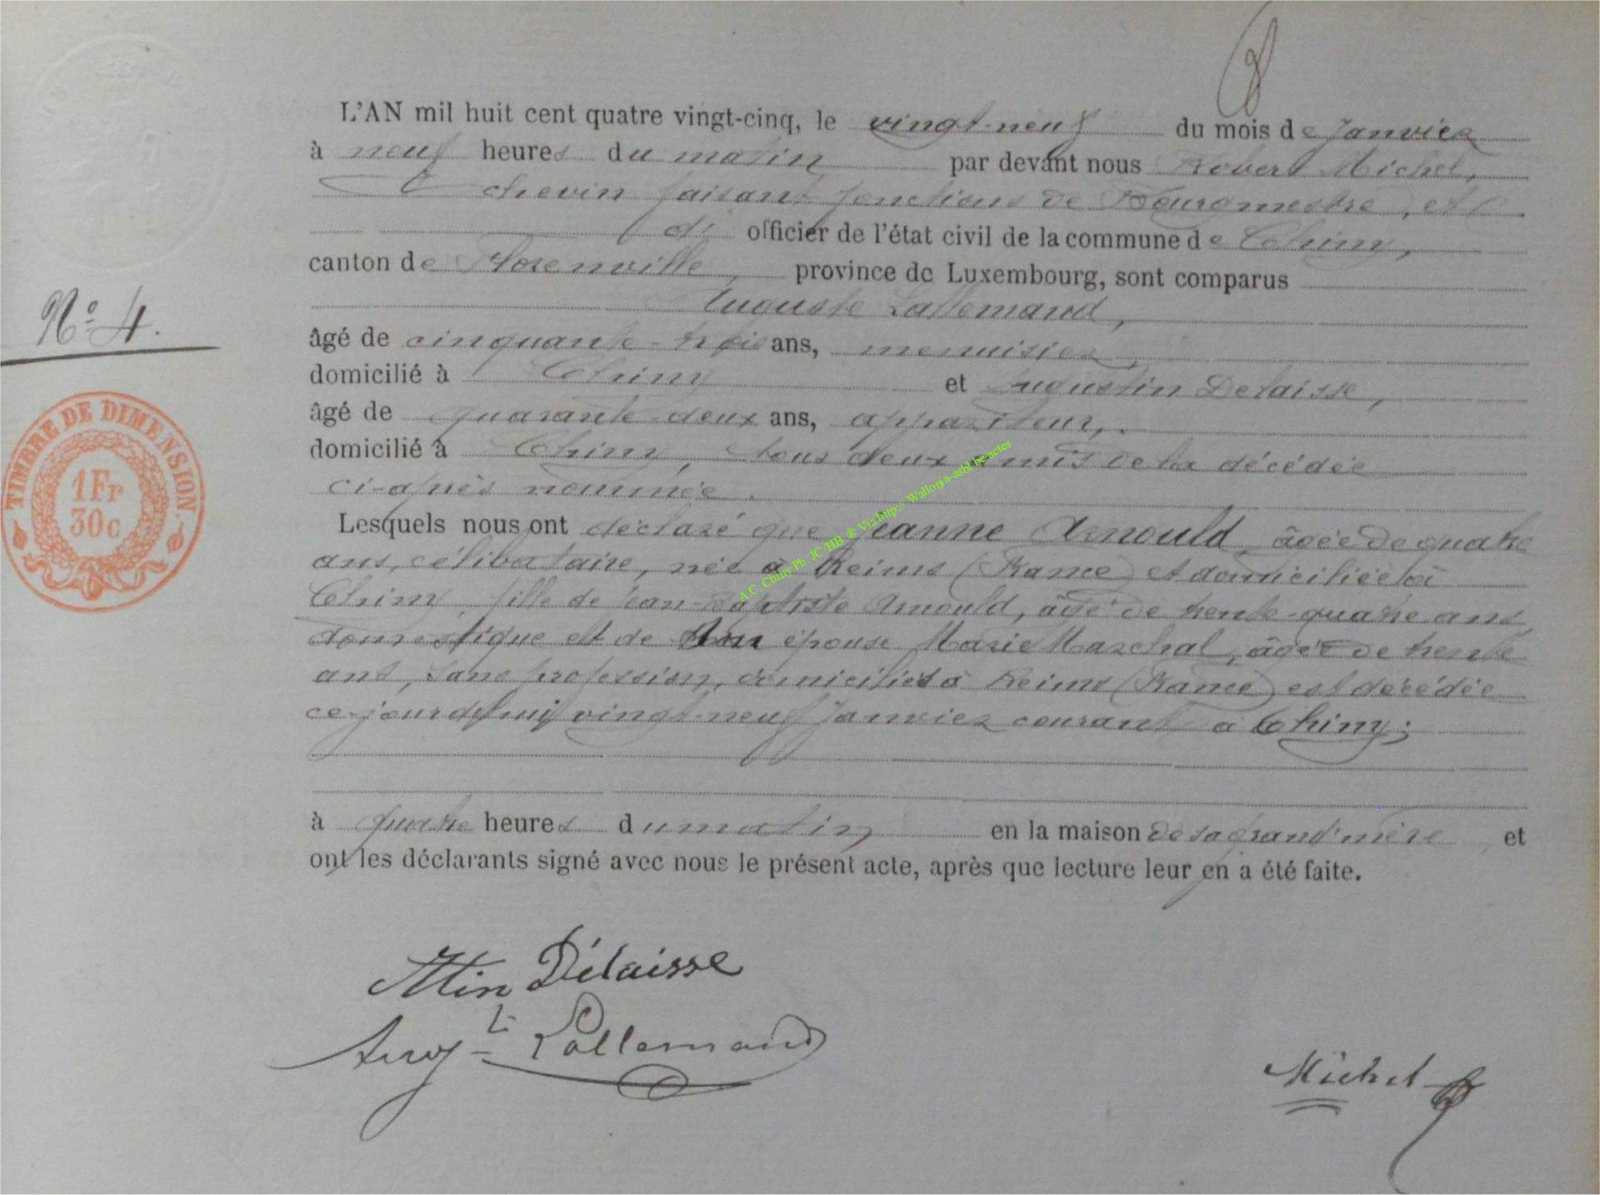 L'AN mil huit cent quatre vingt-cinq, le vingt-neuf du mois de Janvier
à neuf heures du matin par devant nous Robert Michel,
Echevin faisant fonctions de Bourgmestre,
officier de l'état civil de la commune de Chiny,
canton de Florenville, province de Luxembourg, sont comparus
Auguste Lallemand,
N° 4.
âgé de cinquante-trois ans, menuisier,
domicilié à Chiny et Augustin Delaisse,
âgé de quarante-deux ans, appariteur,
domicilié à Chiny, tous deux amis de la décédée
ci-après nommée.
TIMBRE DE DIMENSION
1Fr
30c
Lesquels nous ont déclaré que Jeanne Arnould, âgée de quatre
ans, célibataire, née à Reims (France) et domiciliée à
Chiny, fille de Jean-Baptiste Arnould, âgé de trente-quatre ans,
domestique et de son épouse Marie Marchal, âgée de trente
ans, sans profession, domiciliés à Reims (France) est décédée
ce jourd'hui vingt-neuf Janvier courant à Chiny;
à quatre heures du matin en la maison de sa grand'mère, et
ont les déclarants signé avec nous le présent acte, après que lecture leur en a été faite.
Atin Délaisse
Aug-te Lallemand
Michel
A.C. Chiny Ph JC/HB & Viz http://Wallonia-asbl.be/actes